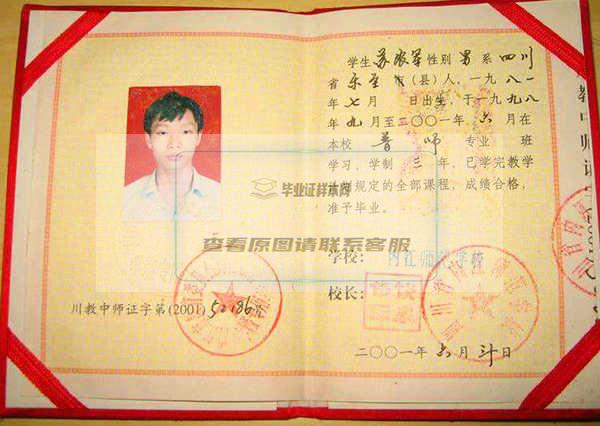 学生 苏 军 性别 男 系 四川
省 乐至 市(县)人，一九八一
年 七 月 日出生，于一九九八
年 九 月至二〇〇一年 六 月在
本校 普师 专业 班
学习，学制 三 年，已学完教学
计划规定的全部课程，成绩合格，
准予毕业。
毕业证样本网
查看原图请联系客服
学校： 内江师范学校
校长：
川教中师证字第(2001) 号
二〇〇一年 六 月 日